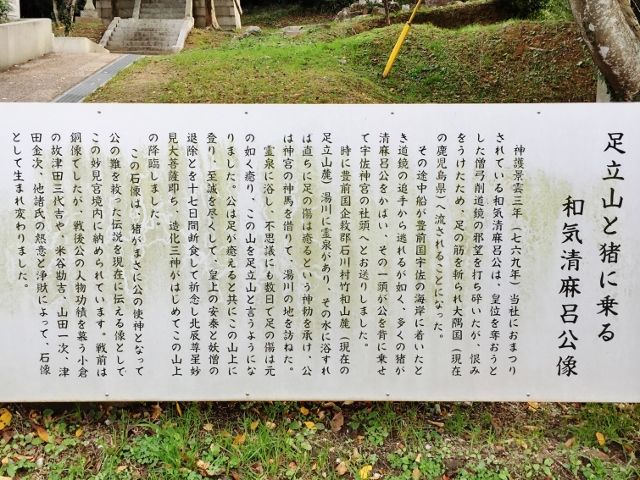 足立山と猪に乗る
和気清麻呂公像
神護景雲三年（七六九年）当社におまつり
されている和気清麻呂公は、皇位を奪おうと
した僧弓削道鏡の邪望を打ち砕いたが、恨み
をうけたため、足の筋を斬られ大隅国（現在
の鹿児島県）へ流されることになった。
その途中船が豊前国宇佐の海岸に着いたと
き道鏡の追手から逃れるが如く、多くの猪が
清麻呂公をかばい、その一頭が公を背に乗せ
て宇佐神宮の社頭へとお送りしました。
時に豊前国企救郡石川村竹和山麓（現在の
足立山麓）湯川に霊泉があり、その水に浸すれ
ば直ちに足の傷は癒るという神勅を承け、公
は神宮の神馬を借りて、湯川の地を訪ねた。
霊泉に浴し、不思議にも数日で足の傷は元
の如く癒り、この山を足立山と言うようにな
りました。公は足が癒えると共にこの山上に
登り、至誠を尽くして、皇上の安泰と妖僧の
退除とを十七日間断食して祈念し北辰尊星妙
見大菩薩即ち、造化三神がはじめてこの山上
の降臨しました。
この石像は、猪がまさに公の使神となって
公の難を救った伝説を現在に伝える像として
この妙見宮境内に納められています。戦前は
銅像でしたが、戦後公の人物功積を慕う小倉
の故津田三代吉や、米谷勘吉、山田一次、津
田金次、他諸氏の懇意と浄財によって、石像
として生まれ変わりました。